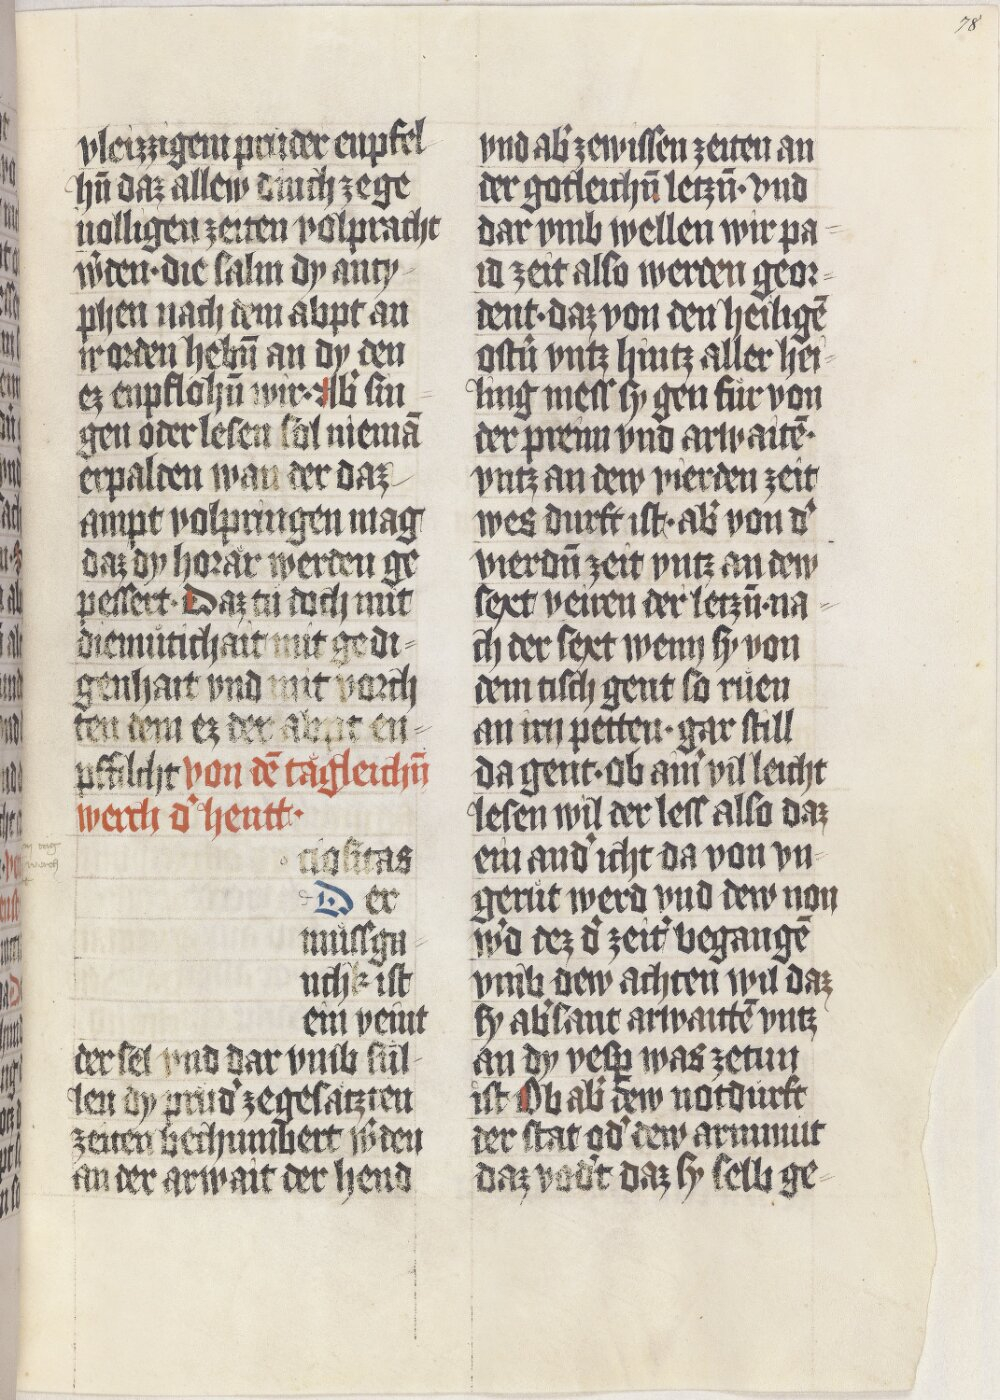 78
vleizzigem pruder enpfel
hn̄ daz allew durich ze ge
uolligen zeiten volpracht
wˀden · die salm dy anty
phen nach dem abpt an
ir orden hebn̄ an dy den
ez enpflohn̄ wir · Abˀ sin
gen oder lesen sol niemā
erpalden wan der daz
ampt volpringen mag
daz dy horär werden ge
pessert · Daz tu doch mit
diemütichait mit gedi
genhait vnd mit vorch
ten dem ez der abpt en
pfilcht von dē tägleichn̄
werch dˀ hentt ·
ciositas
Der
müssga
nchk ist
ein veint
der sel vnd dar vmb sül
len dy prüdˀ ze gesatzten
zeiten bechumbert wˀden
an der arwait der hend
vnd abˀ ze wissen zeiten an
der gotleichn̄ letzn̄ · vnd
dar vmb wellen wir pa
id zeit also werden geor
dent · daz von den heiligē
ostn̄ vntz hintz aller hei
ling mess sy gen für von
der preim vnd arwaitē ·
vntz an dew vierden zeit
wes durft ist · abˀ von dˀ
vierdn̄ zeit vntz an dew
sext veiren der letzn̄ · na
ch der sext wenn sy von
dem tisch gent so rüen
an irn petten · gar still
da gent · Ob aimˀ vil leicht
lesen wil der less also daz
ein andˀ icht da von vn
gerüt werd vnd dew non
wˀd dez dˀ zeitˀ begangē
vmb dew achten wil daz
sy abˀ sant arwaittē vntz
an dy vesp was ze tun
ist Ob abˀ dew notdurft
der stat odˀ dew armmut
daz vodˀt daz sy selb ge